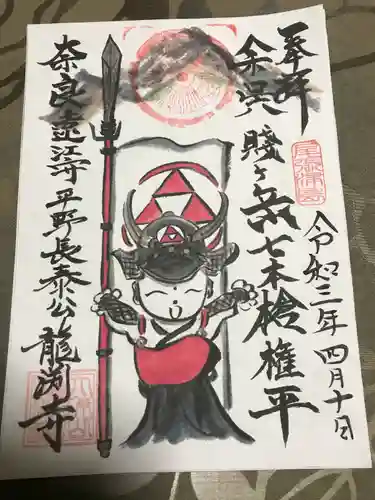 奉拝
余呉
賤ヶ岳七本槍権平
令和三年四月十日
奈良遠江守平野長泰公龍渕寺